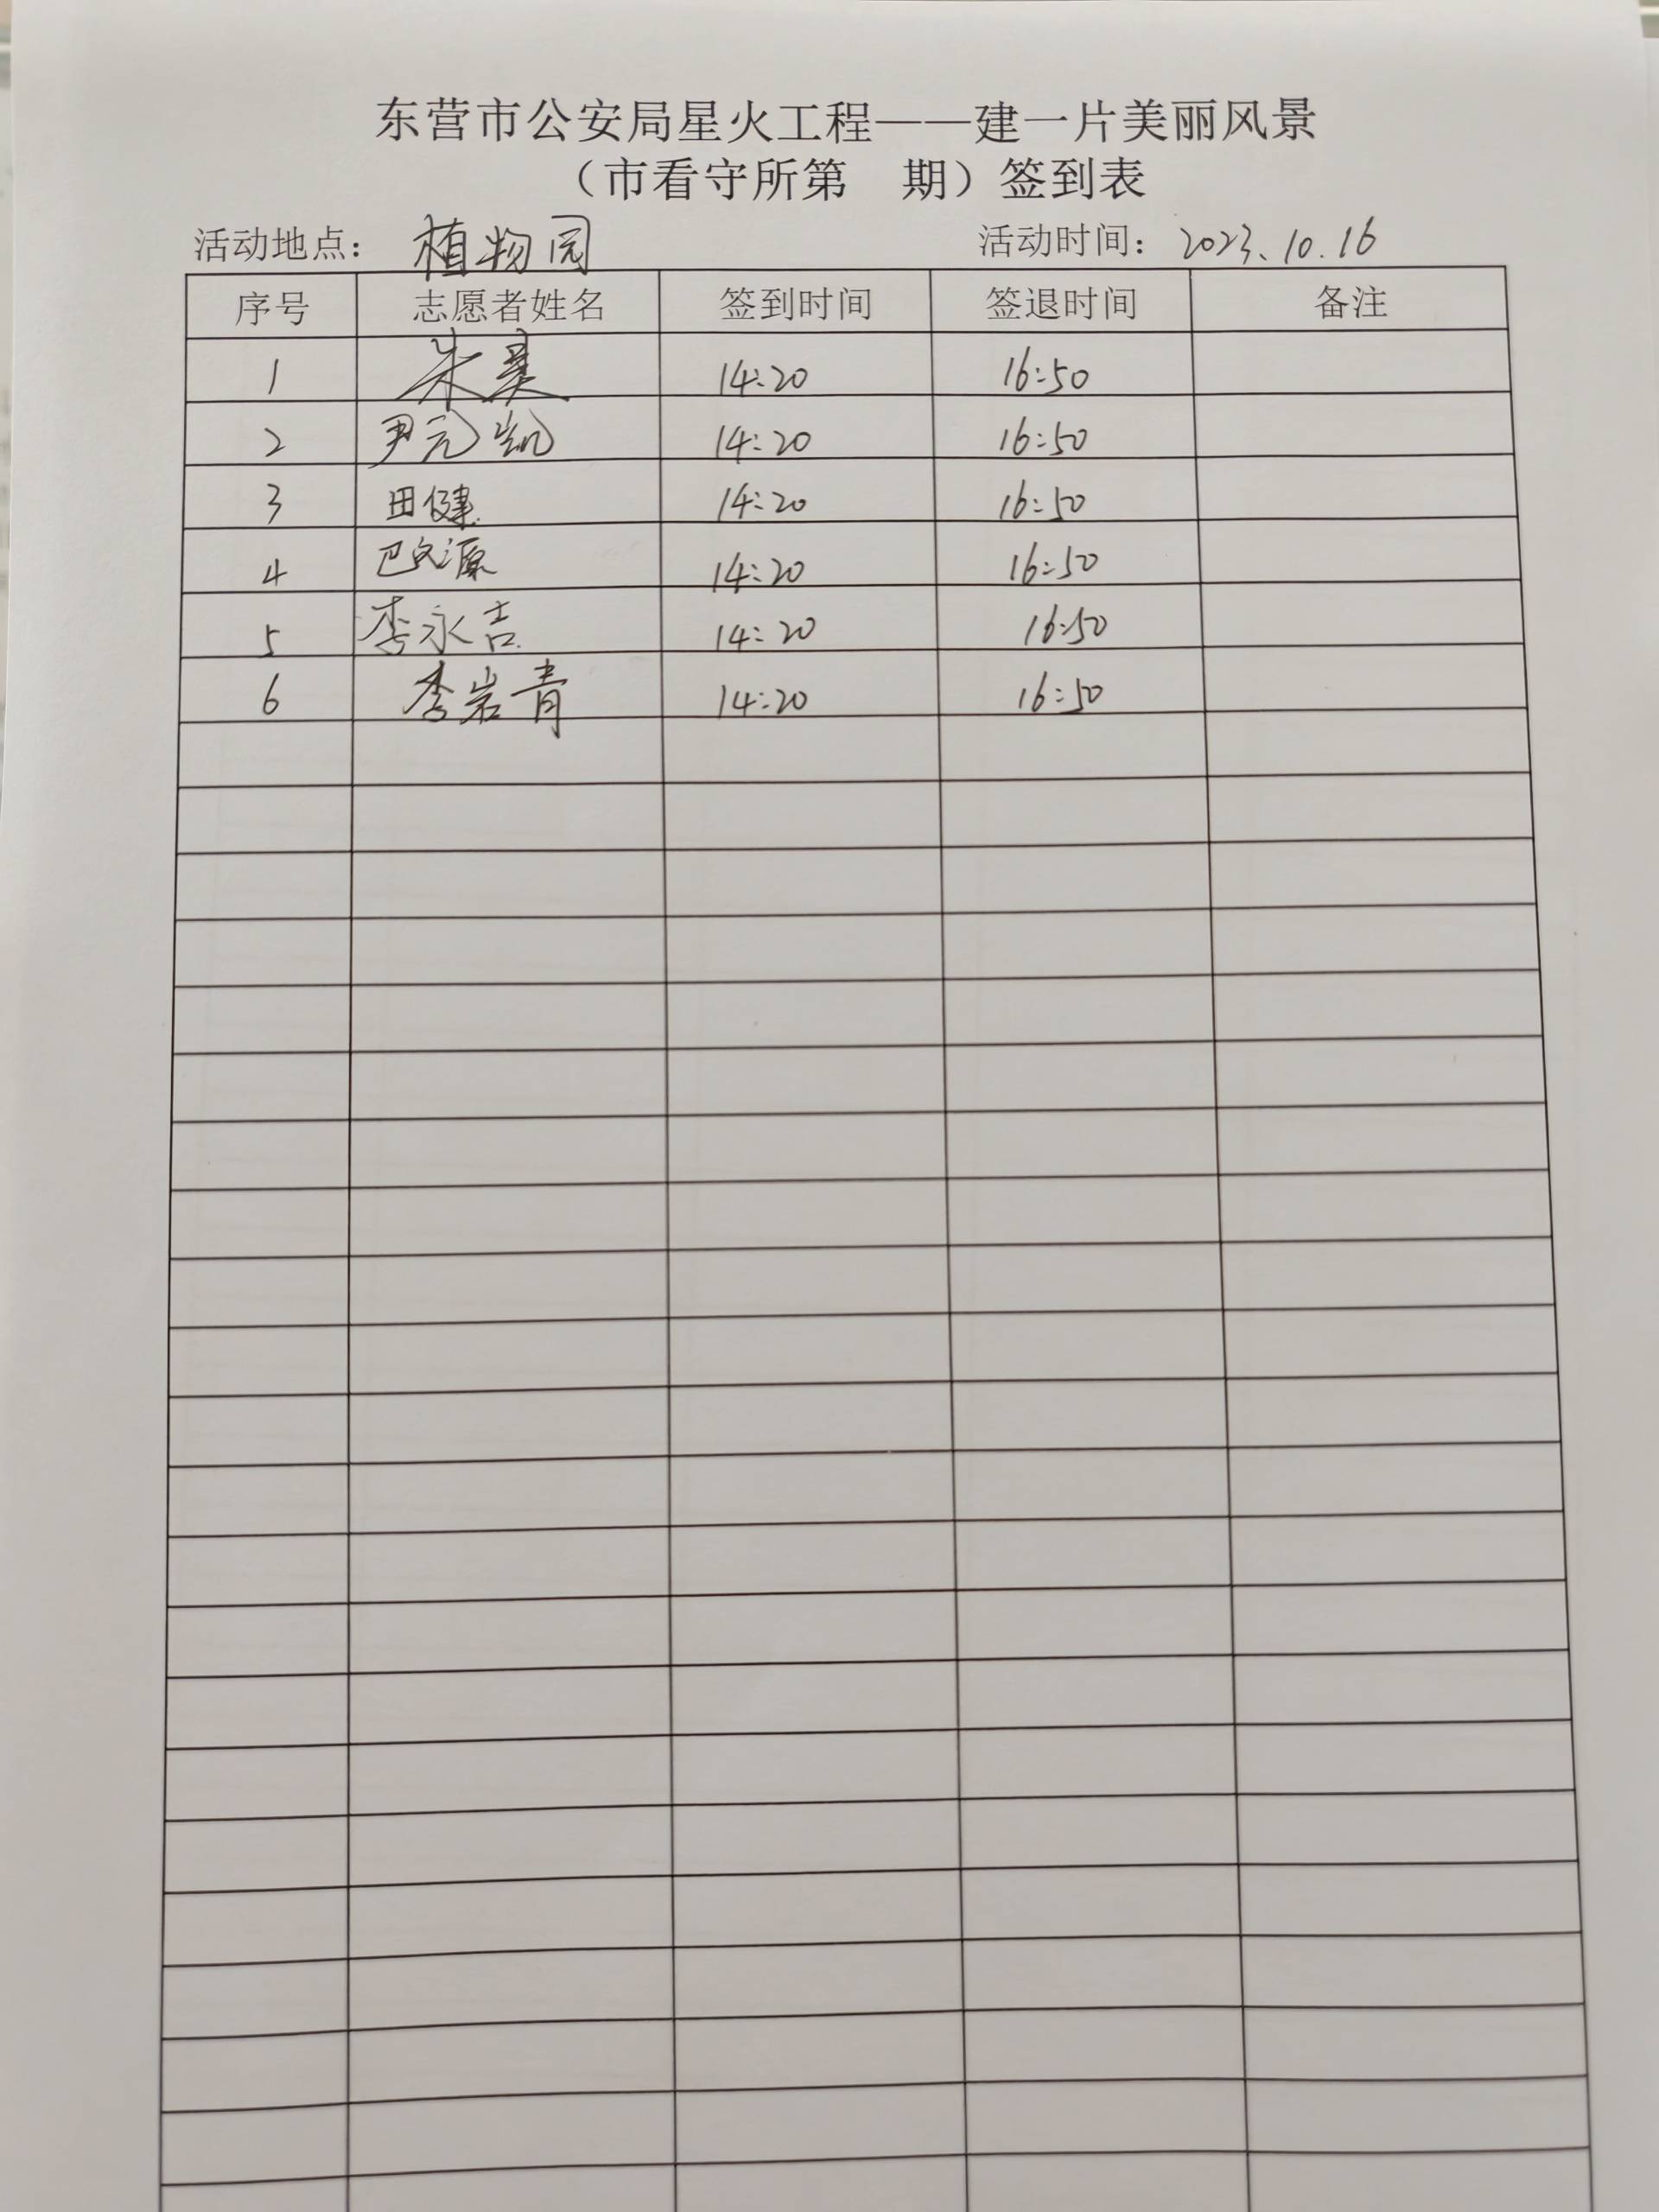 东营市公安局星火工程——建一片美丽风景
（市看守所第 期）签到表
活动地点： 植物园 活动时间： 2023.10.16
序号 志愿者姓名 签到时间 签退时间 备注
1 朱 14:20 16:50
2 尹元凯 14:20 16:50
3 田健 14:20 16:50
4 巴文源 14:20 16:50
5 李永吉 14:20 16:50
6 李岩青 14:20 16:50